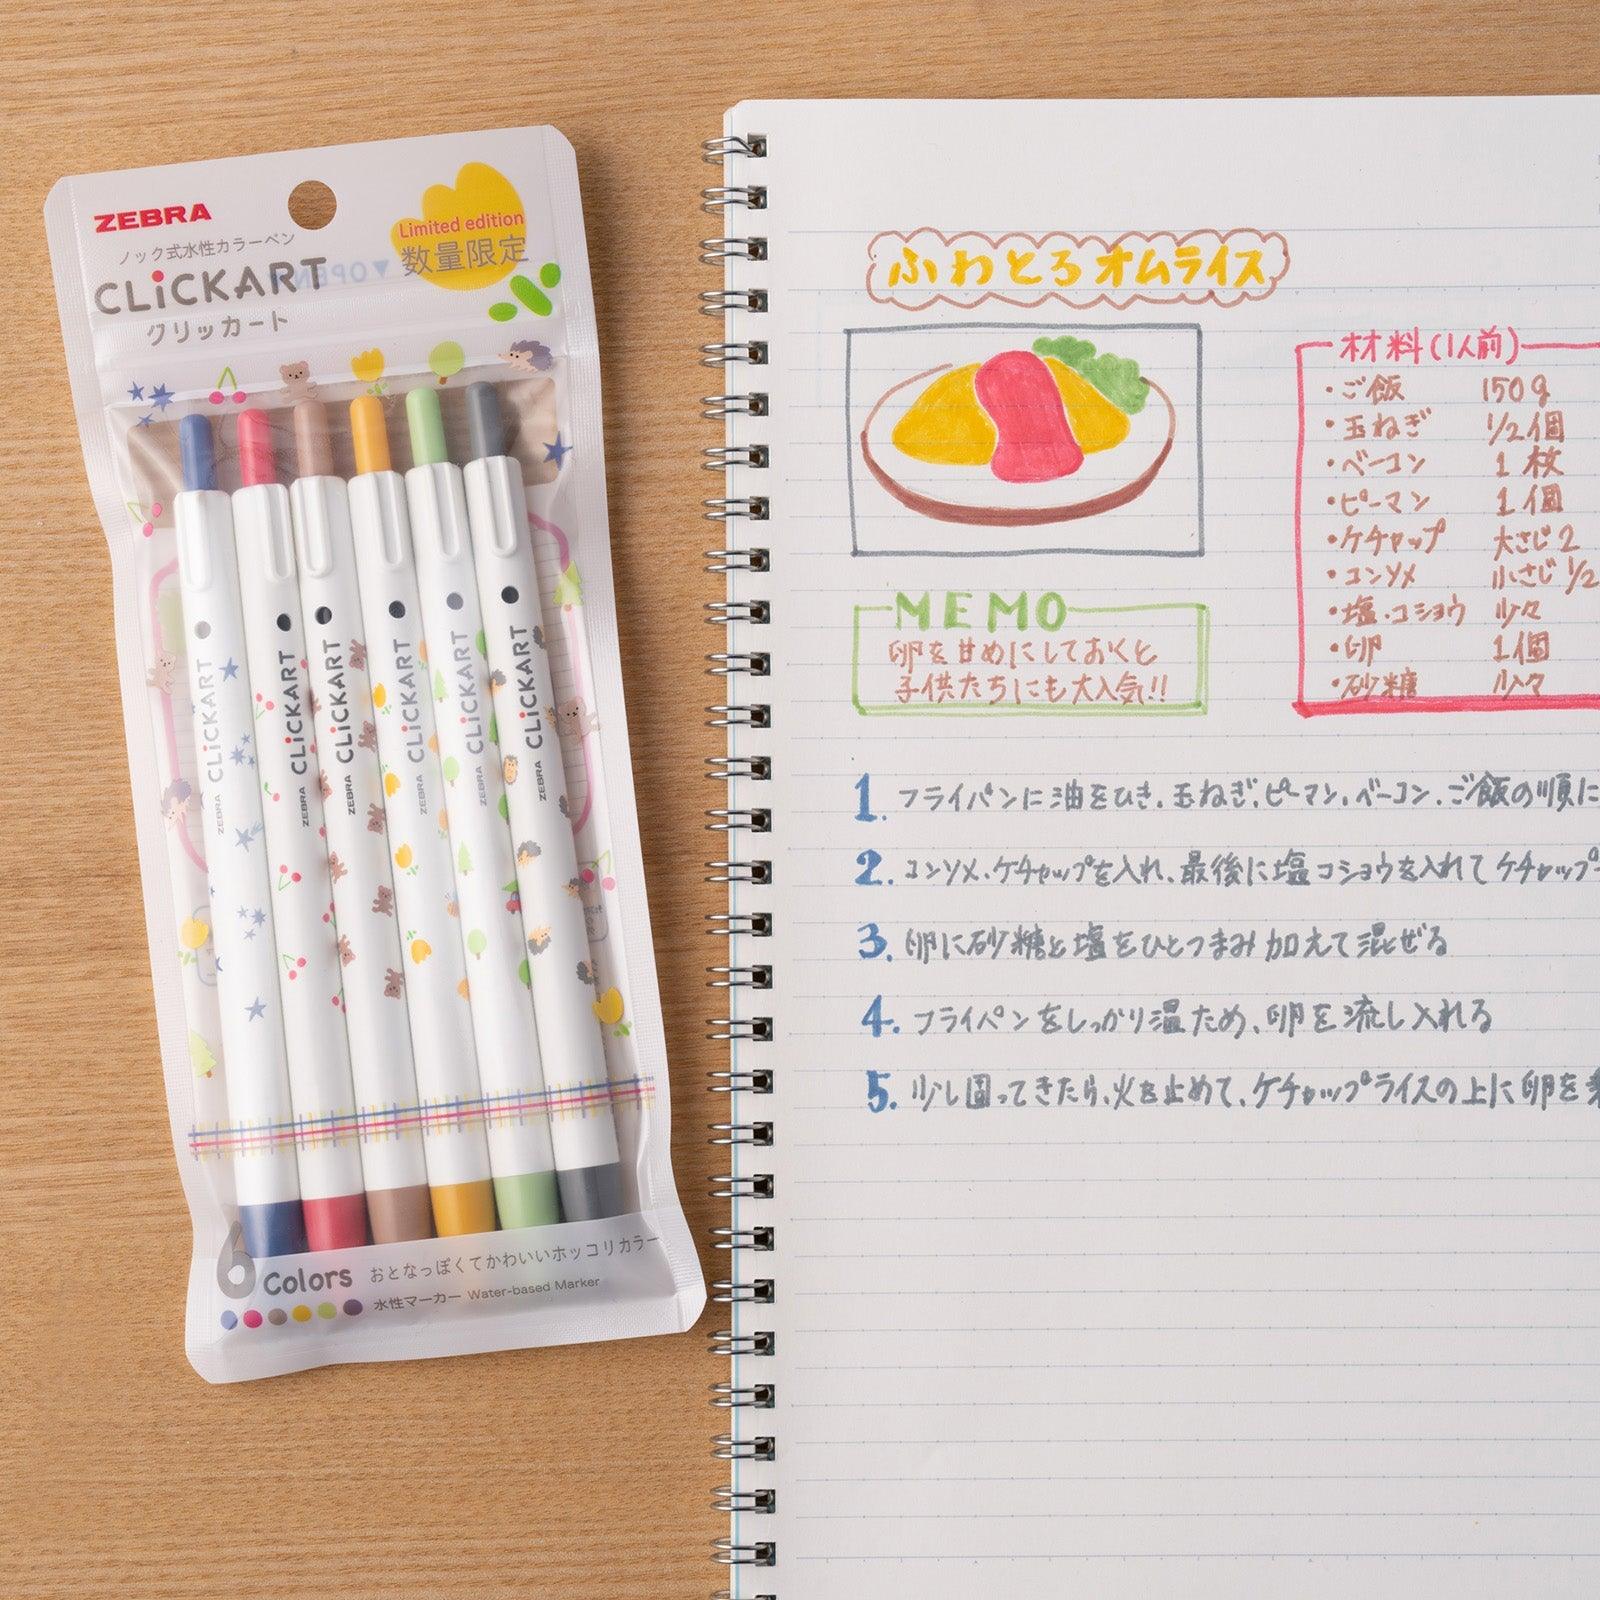 ZEBRA
ノック式水性カラーペン
CLiCKART
クリッカート
Limited edition
数量限定
OPEN
CLiCKART
ZEBRA
CLiCKART
ZEBRA
CLiCKART
ZEBRA
CLiCKART
ZEBRA
CLiCKART
ZEBRA
CLiCKART
ZEBRA
6 Colors おとなっぽくてかわいいホッコリカラー
水性マーカー Water-based Marker
ふわとろオムライス
材料(1人前)
・ご飯 150g
・玉ねぎ 1/2個
・ベーコン 1枚
・ピーマン 1個
・ケチャップ 大さじ2
・コンソメ 小さじ1/2
・塩・コショウ 少々
・卵 1個
・砂糖 少々
MEMO
卵を甘めにしておくと
子供たちにも大人気!!
1. フライパンに油をひき、玉ねぎ、ピーマン、ベーコン、ご飯の順に
2. コンソメ、ケチャップを入れ、最後に塩コショウを入れてケチャップ
3. 卵に砂糖と塩をひとつまみ加えて混ぜる
4. フライパンをしっかり温ため、卵を流し入れる
5. 少し固ってきたら、火を止めて、ケチャップライスの上に卵を